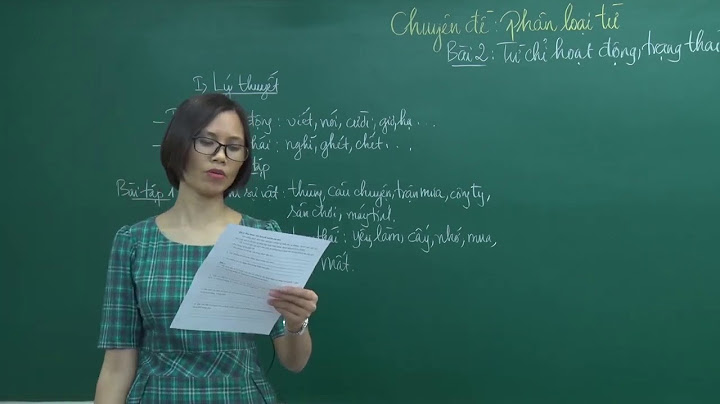 Chuyên đề: Phân loại từ
Bài 2: Từ chỉ hoạt động, trạng thái
I, Lý thuyết
động: viết, nói, cười, giơ, hạ...
thái: nghĩ, ghét, chết...
tập
Bài tập 1 sự vật: thùng, câu chuyện, trận mưa, công ty,
sân chơi, máy tính.
thái: yêu, làm, cấy, nhớ, mua,
mất.